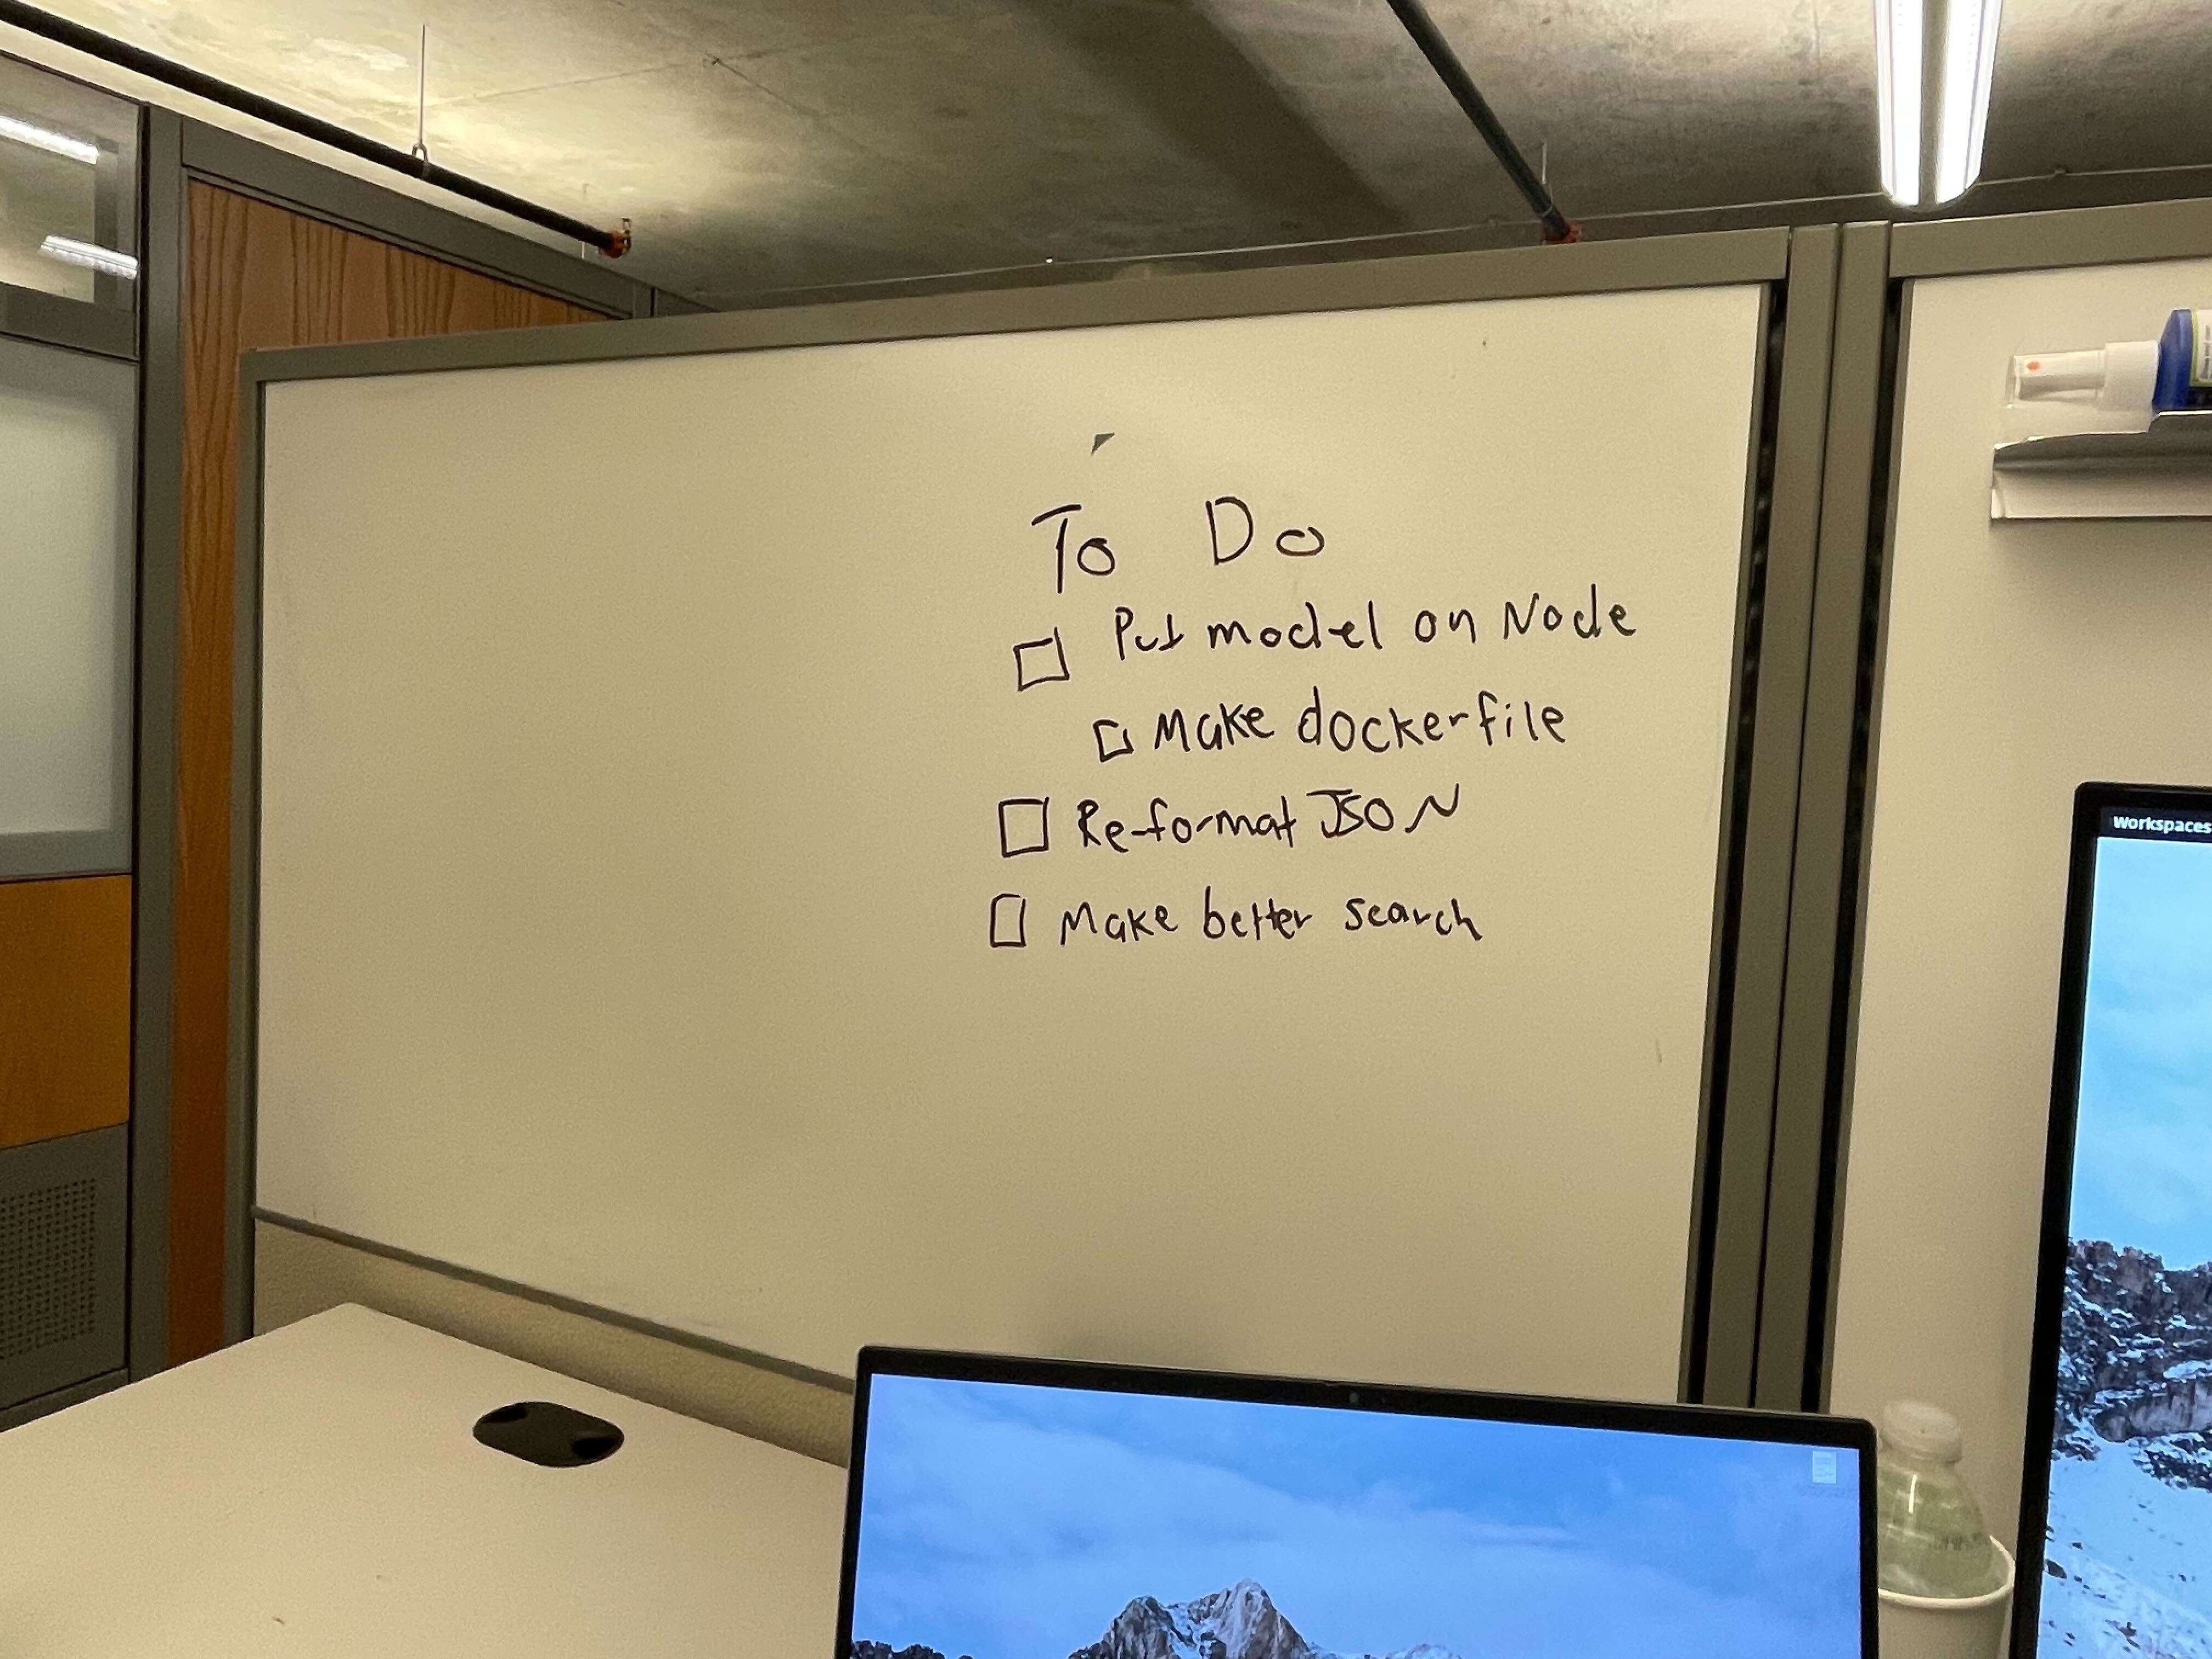 To Do
Put model on Node
Make dockerfile
Re-format JSON
Make better search
Workspaces